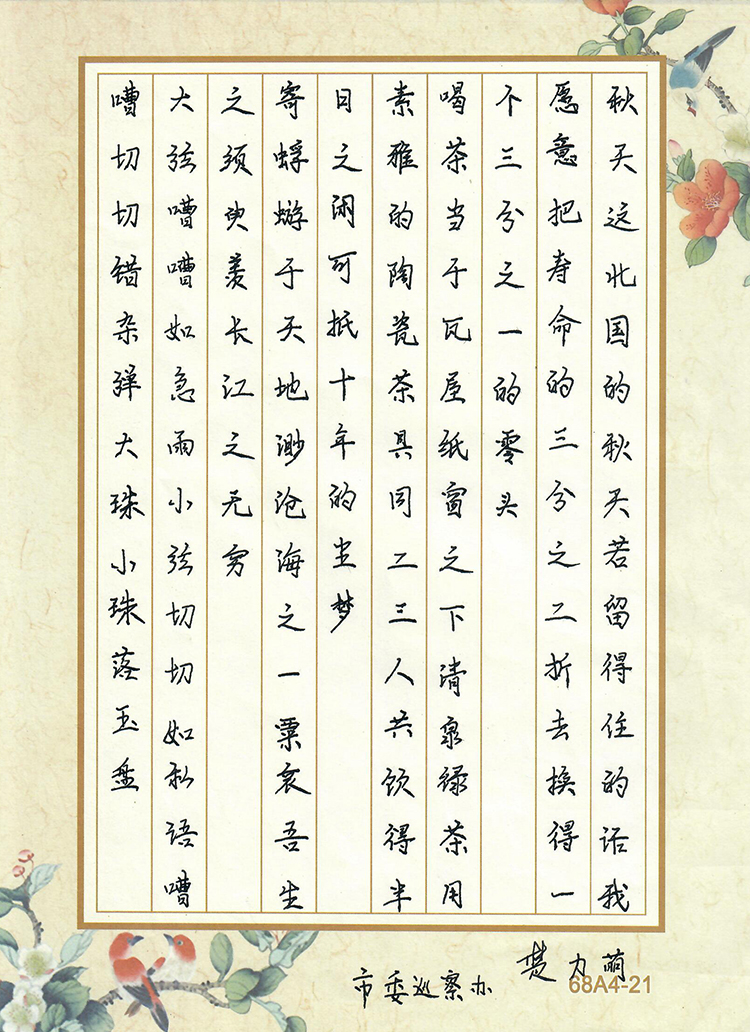 秋天这北国的秋天若留得住的话我
愿意把寿命的三分之二折去换得一
个三分之一的零头
喝茶当于瓦屋纸窗之下清泉绿茶用
素雅的陶瓷茶具同二三人共饮得半
日之闲可抵十年的尘梦
寄蜉蝣于天地渺沧海之一粟哀吾生
之须臾羡长江之无穷
大弦嘈嘈如急雨小弦切切如私语嘈
嘈切切错杂弹大珠小珠落玉盘
市委巡察办
力萌
68A4-21